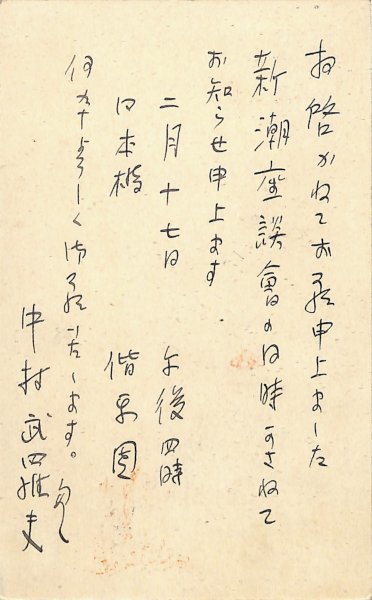 拝啓 かねてお願申上ました
新潮座談會の日時かさねて
お知らせ申上ます
二月十七日 午後四時
日本橋 偕楽園
何卒よろしく御願ひ致します。 匆々
中村武四郎